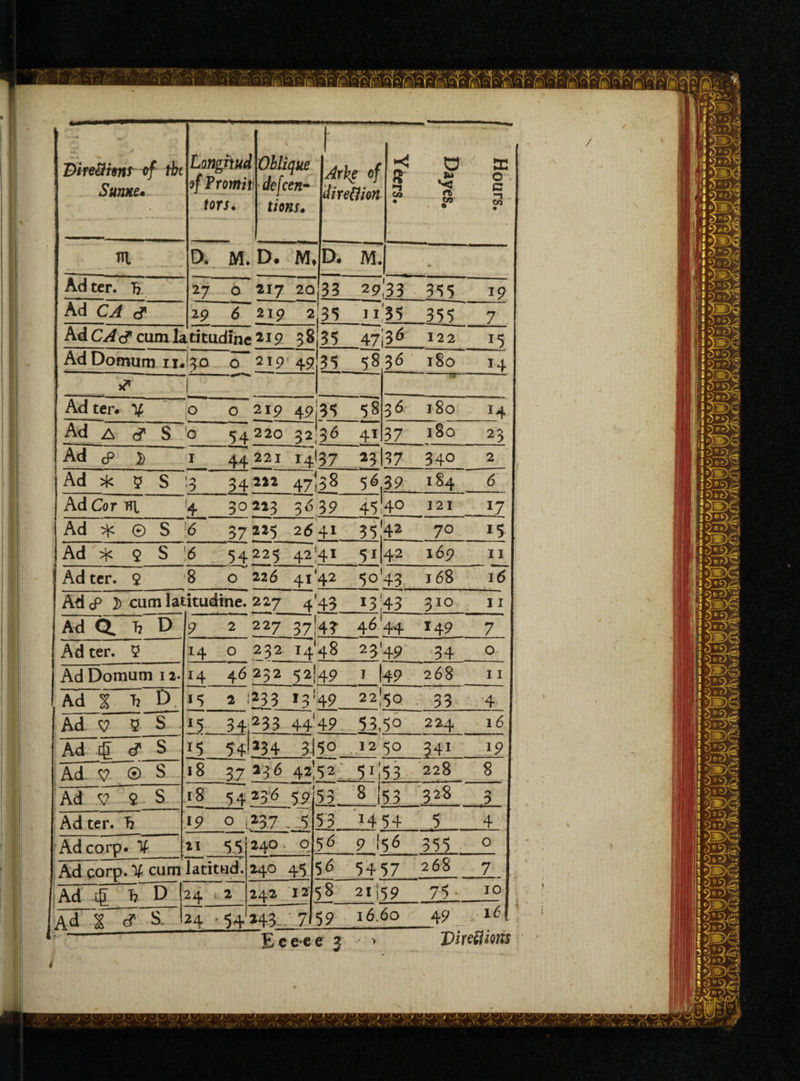 Directions of the Sunne. | Longitud of Promittors. | Oblique descentions. | Arke of direction | Years. | Dayes. | Hours.
♏ | D. M. | D. M. | D. M.
Ad ter. ♄ | 27 0 | 217 20 | 33 29 | 33 355 19
Ad CA ♂ | 29 6 | 219 2 | 35 11 | 35 355 7
Ad CA ♂ cum latitudine | 219 38 | 35 47 | 36 122 15
Ad Domum 11. | 30 0 | 219 49 | 35 58 | 36 180 14
♐
Ad ter. ♃ | 0 0 | 219 49 | 35 58 | 36 180 14
Ad △ ♂ S | 0 54 | 220 32 | 36 41 | 37 180 23
Ad ☍ ☽ | 1 44 | 221 14 | 37 23 | 37 340 2
Ad ⚹ ☿ S | 3 34 | 222 47 | 38 56 | 39 184 6
Ad Cor ♏ | 4 30 | 223 36 | 39 45 | 40 121 17
Ad ⚹ ☉ S | 6 37 | 225 26 | 41 35 | 42 70 15
Ad ⚹ ♀ S | 6 54 | 225 42 | 41 51 | 42 169 11
Ad ter. ♀ | 8 0 | 226 41 | 42 50 | 43 168 16
Ad ☍ ☽ cum latitudine. | 227 4 | 43 13 | 43 310 11
Ad Q. ♄ D | 9 2 | 227 37 | 43 46 | 44 149 7
Ad ter. ☿ | 14 0 | 232 14 | 48 23 | 49 34 0
Ad Domum 12. | 14 46 | 232 52 | 49 1 | 49 268 11
Ad ⚺ ♄ D | 15 2 | 233 13 | 49 22 | 50 33 4
Ad ♡ ☿ S | 15 34 | 233 44 | 49 53 | 50 224 16
Ad ⚼ ♂ S | 15 54 | 234 3 | 50 12 | 50 341 19
Ad ♡ ☉ S | 18 37 | 236 42 | 52 51 | 53 228 8
Ad ♡ ♀ S | 18 54 | 236 59 | 53 8 | 53 328 3
Ad ter. ♄ | 19 0 | 237 5 | 53 14 | 54 5 4
Ad corp. ♃ | 21 55 | 240 0 | 56 9 | 56 355 0
Ad corp. ♃ cum latitud. | 240 45 | 56 54 | 57 268 7
Ad ⚼ ♄ D | 24 2 | 242 12 | 58 21 | 59 75 10
Ad ⚺ ♂ S. | 24 54 | 243 7 | 59 16 | 60 49 16
Eeeee 3 Directions